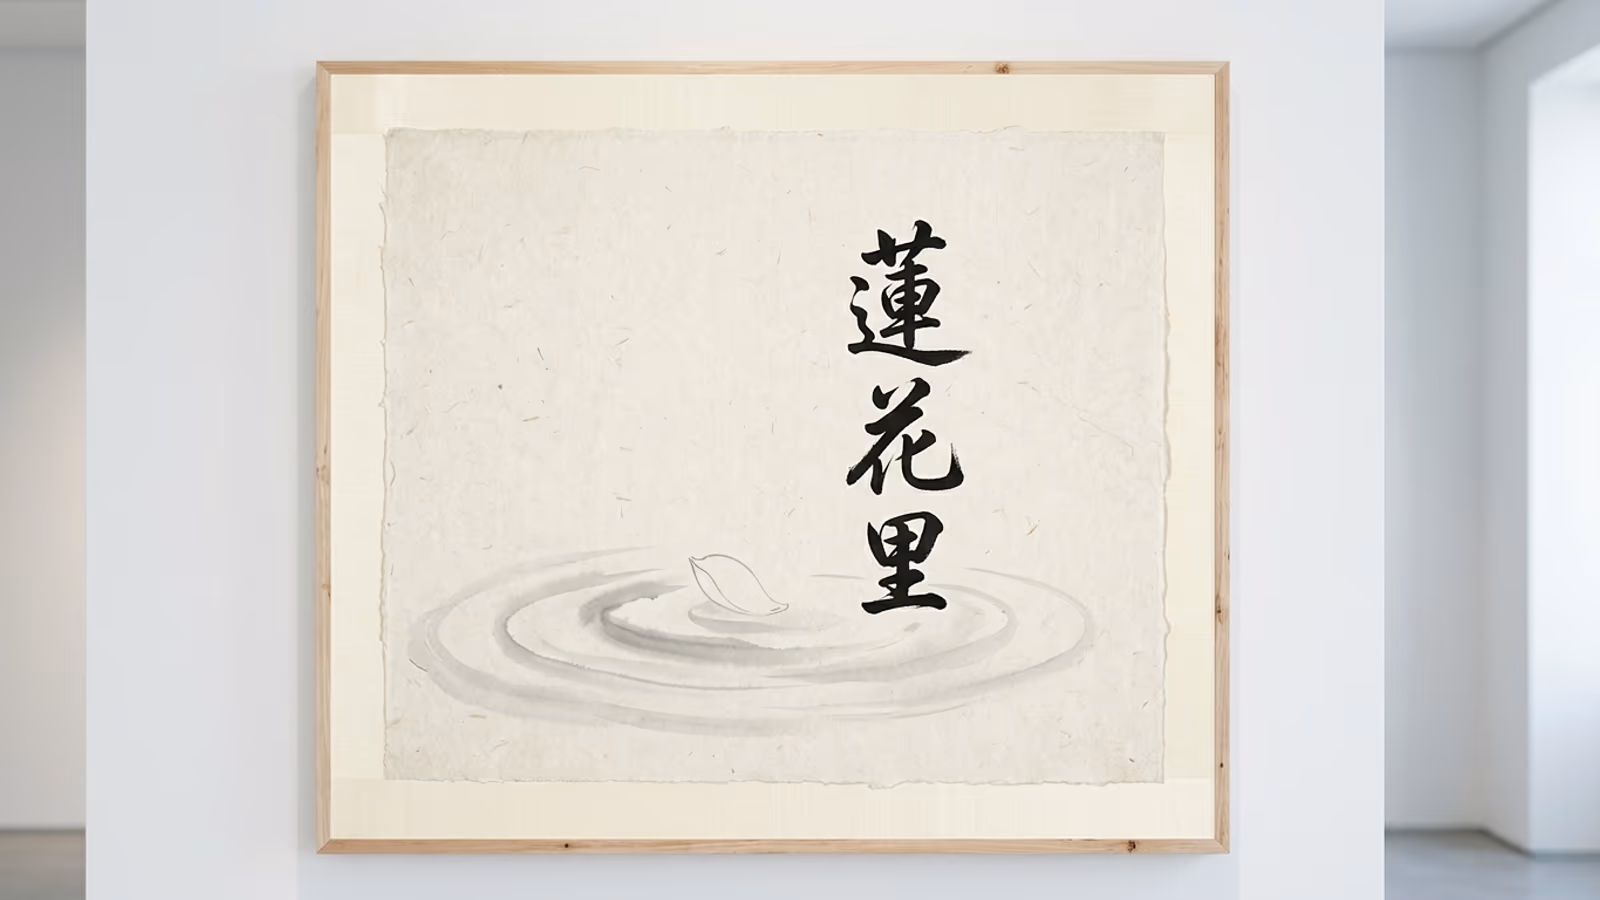 蓮花里